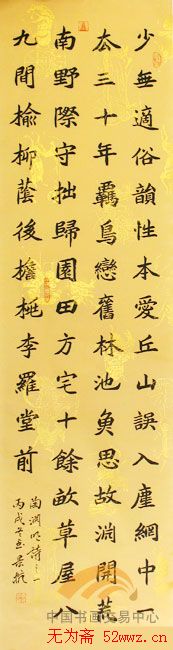 少無適俗韻性本愛丘山誤入塵網中一
去三十年羈鳥戀舊林池魚思故渊開荒
南野際守拙歸園田方宅十餘畝草屋八
九間榆柳蔭後檐桃李羅堂前
陶渊明詩之一
丙戌
中国书画交易中心
无为斋 52wwz.cn